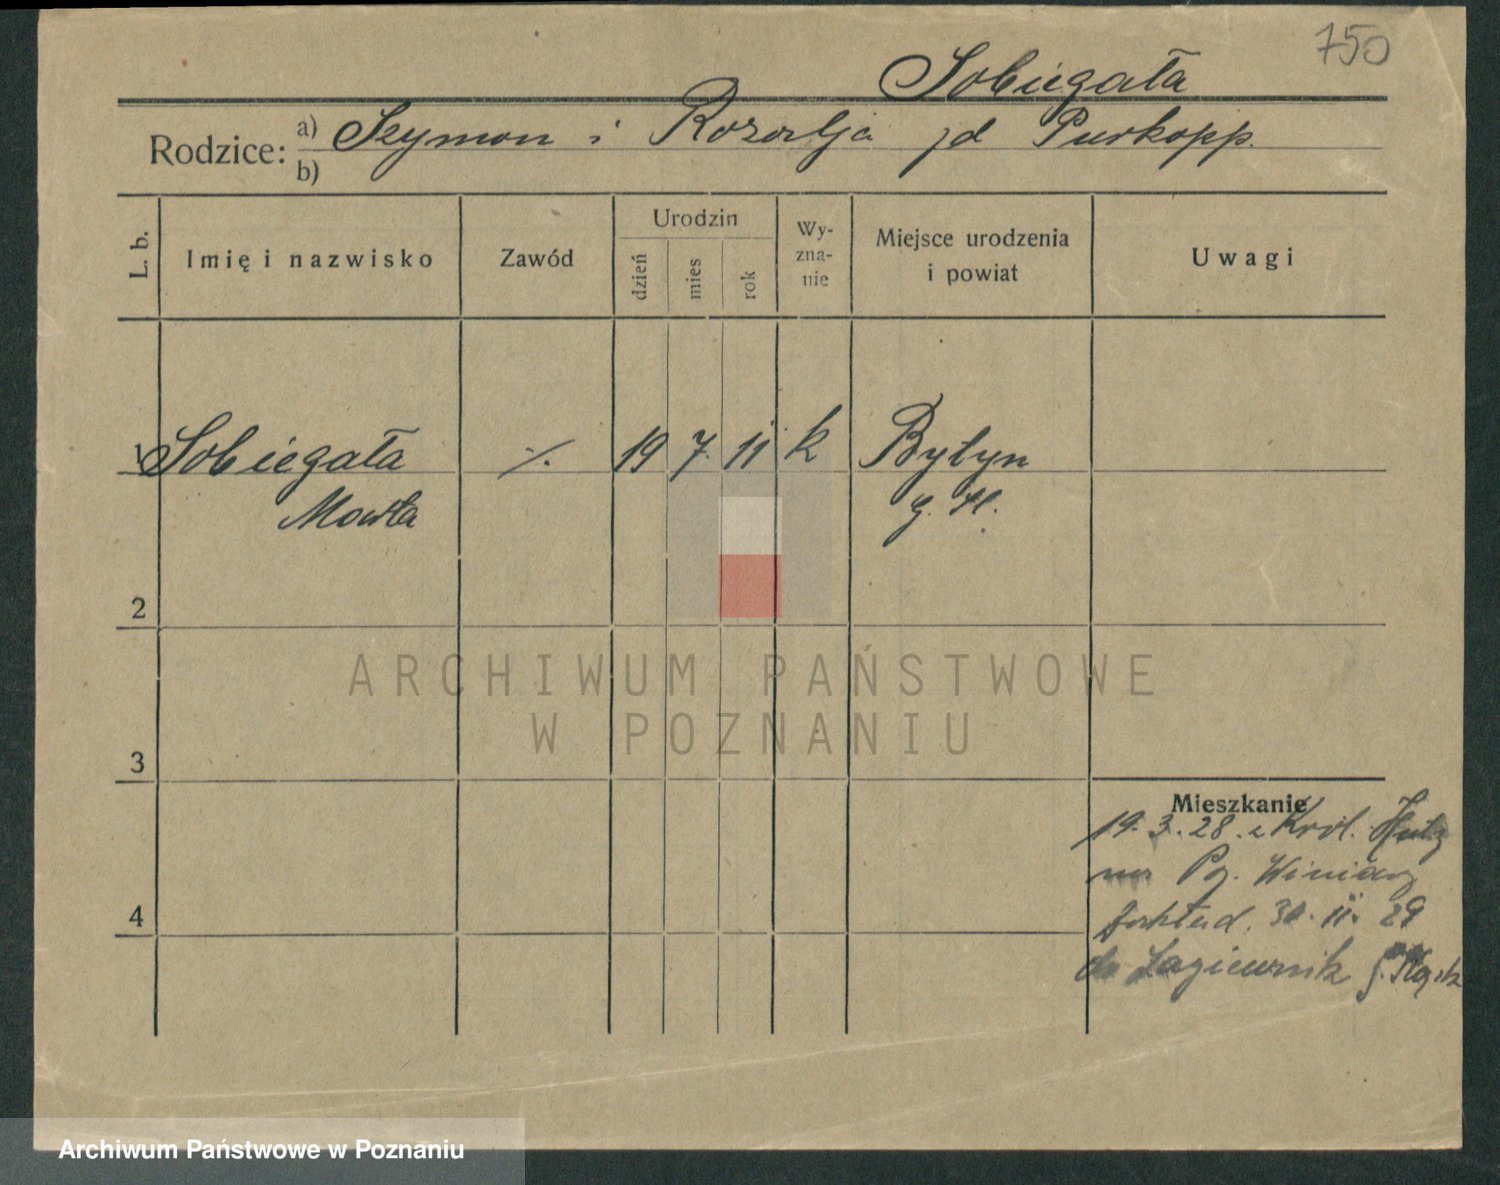 750
Sobiegała
Rodzice: a) Szymon i Rozalja jd Purkopp.
b)
L. b.
Imię i nazwisko
Zawód
Urodzin
dzień
mies
rok
Wy-
zna-
nie
Miejsce urodzenia
i powiat
Uwagi
1 Sobiegała ⁒ 19 7. 11 k Bytyn
Marta
2
3
4
Mieszkanie
19. 3. 28. z Król. Huty
na Pg. Winiary
30. 11. 29
do Łagiewnik
ARCHIWUM PAŃSTWOWE
W POZNANIU
Archiwum Państwowe w Poznaniu